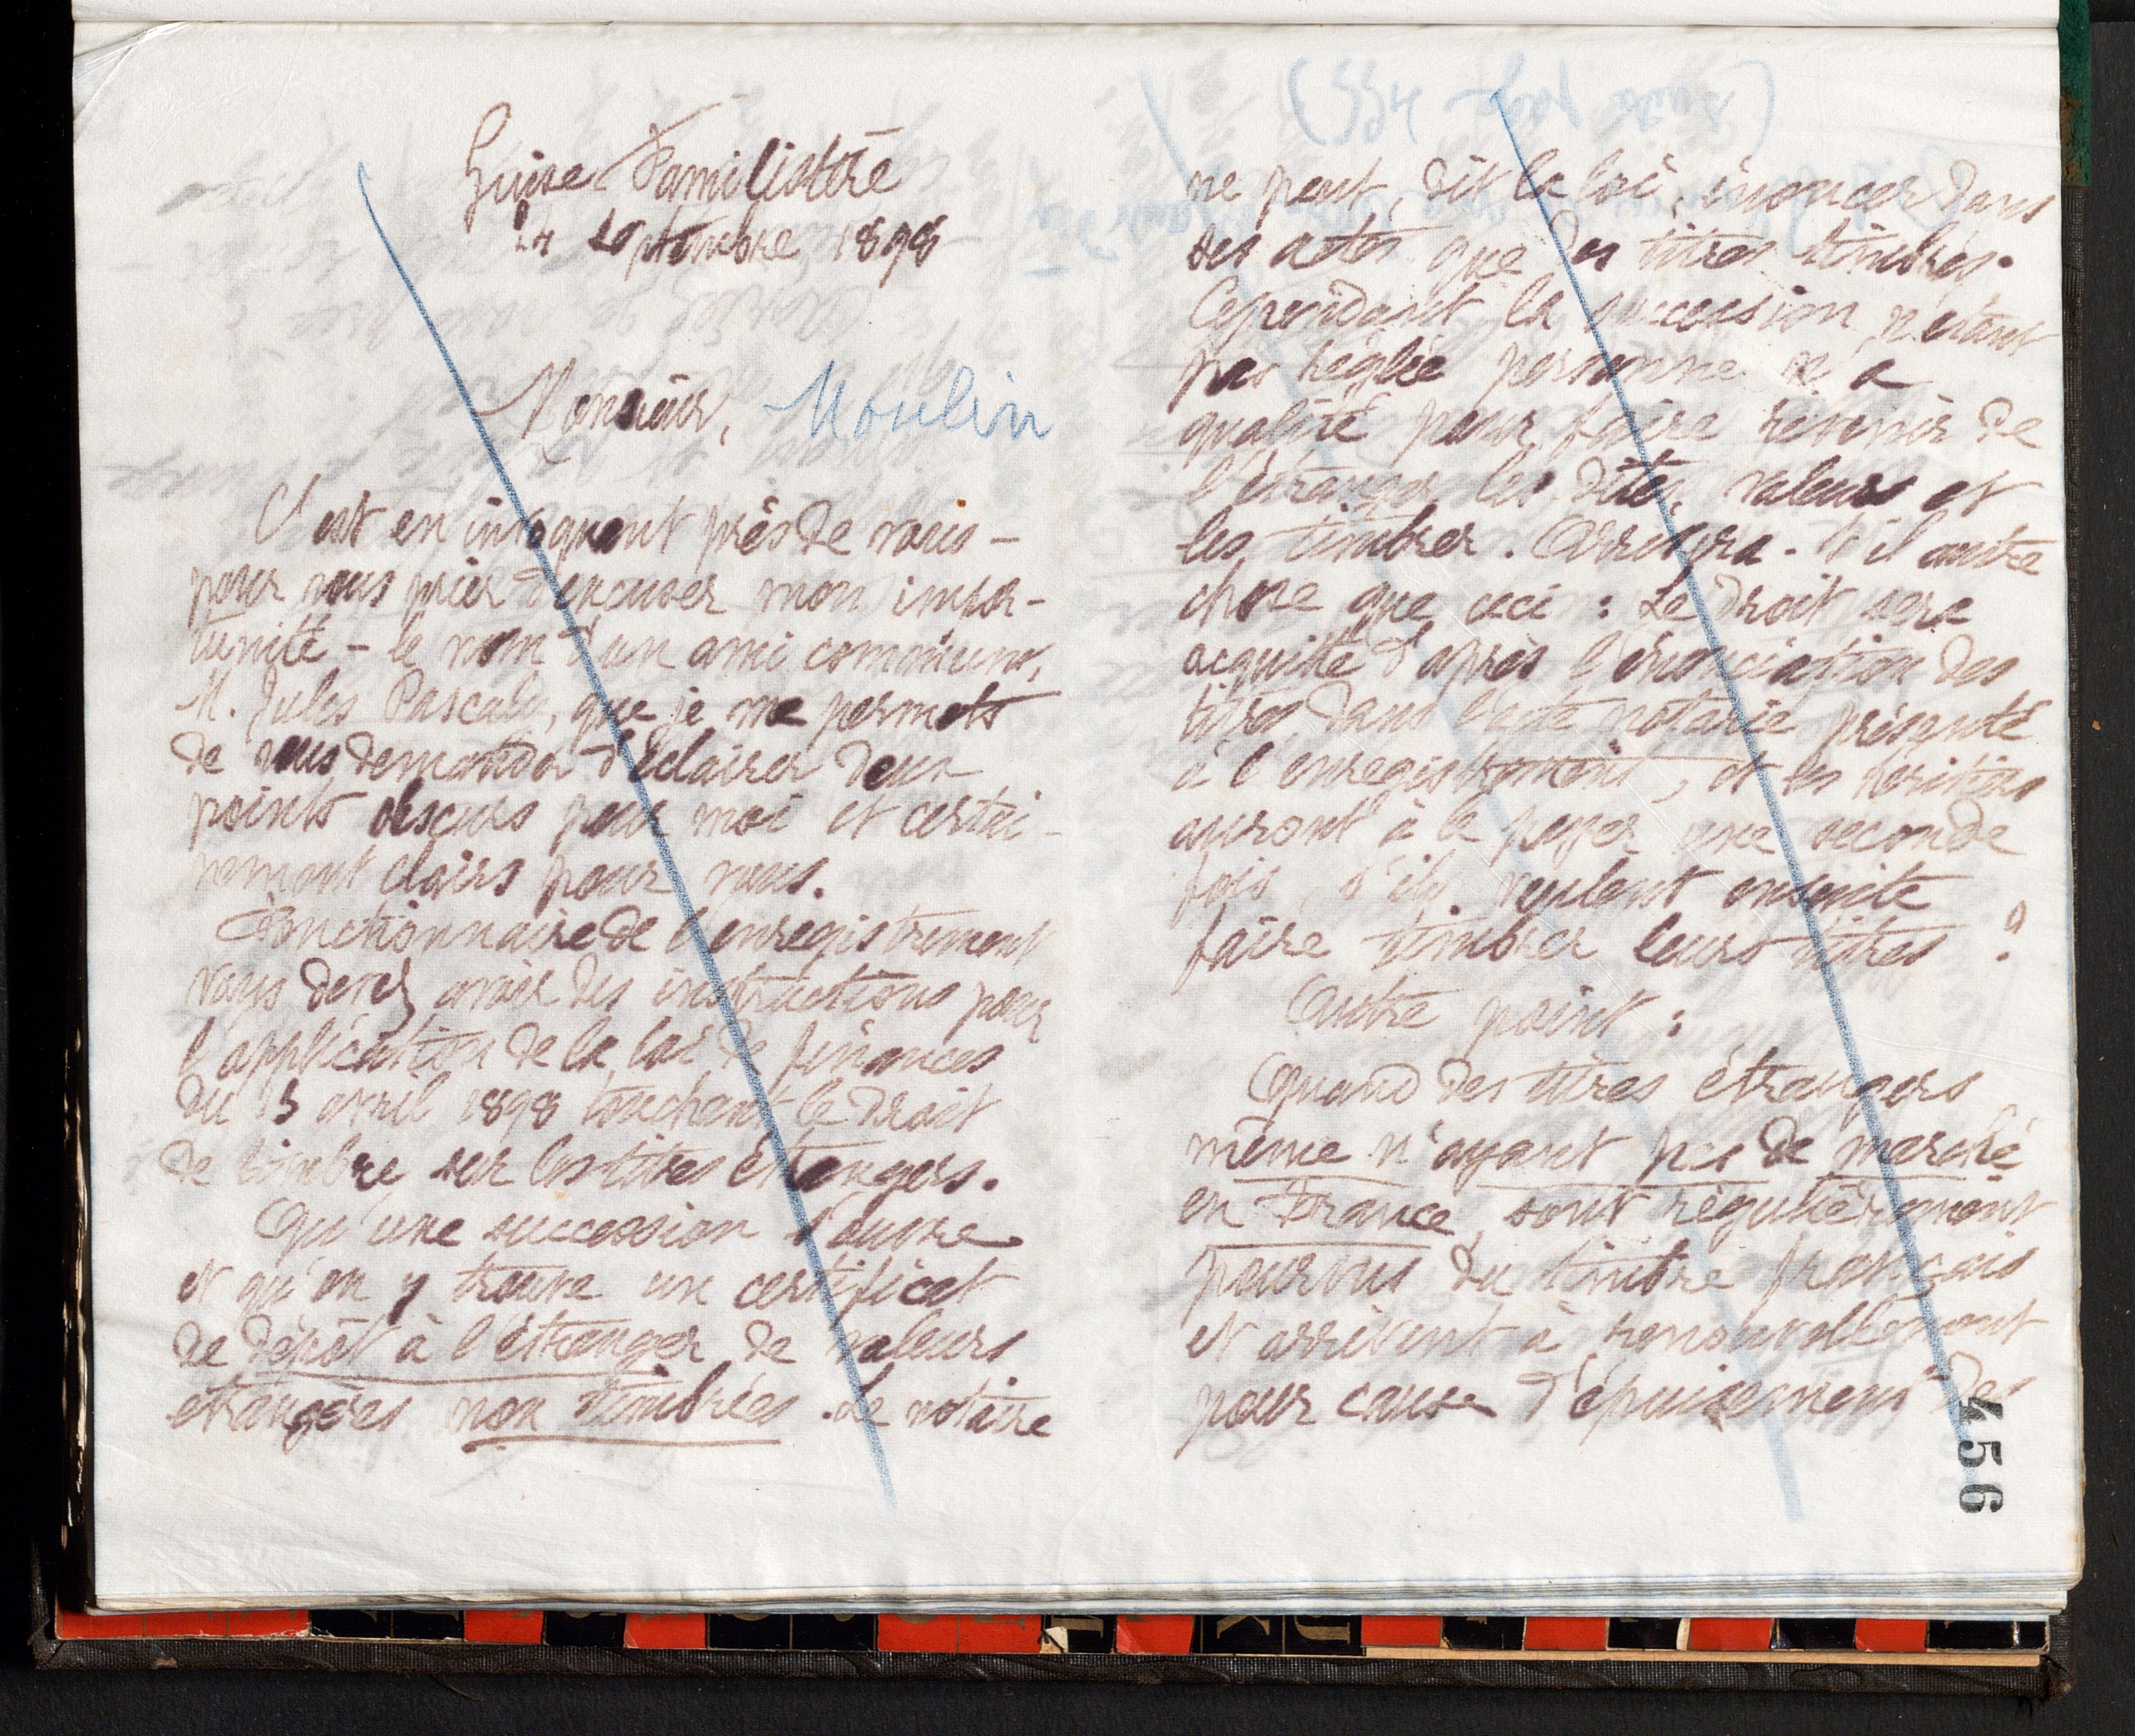 Guise Familistère
24 septembre 1898
Monsieur, Moulin
C'est en invoquant près de vous -
pour vous prier d'excuser mon impor-
tunité - le nom d'un ami commun,
M. Jules Pascaly, que je me permets
de vous demander d'éclairer deux
points obscurs pour moi et certai-
nement clairs pour vous.
Fonctionnaire de l'enregistrement
vous devez avoir des instructions pour
l'application de la loi de finances
du 13 avril 1898 touchant le droit
de timbre sur les titres étrangers.
Qu'une succession s'ouvre
et qu'on y trouve un certificat
de dépôt à l'étranger de valeurs
étrangères non timbrées. Le notaire
ne peut, dit la loi, énoncer dans
ses actes que des titres timbrés.
Cependant la succession n'étant
pas réglée personne n'a
qualité pour faire revenir de
l'étranger les dites valeurs et
les timbrer. Arrivera-t-il autre
chose que ceci : Le droit sera
acquitté d'après l'énonciation des
titres dans l'acte notarié présenté
à l'enregistrement, et les héritiers
auront à le payer une seconde
fois, s'ils veulent ensuite
faire timbrer leurs titres ?
Autre point :
Quand des titres étrangers
même n'ayant pas de marché
en France, sont régulièrement
pourvus du timbre français
et arrivent à renouvellement
pour cause d'épuisement des
456